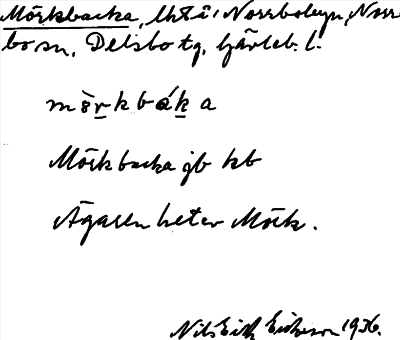 Mörkbacka, lht å Norrbobyn, Norr-
bo sn, Delsbo tg, Gävleb. l.
mö̀rkbáka
Mörkbacka gb kb
Ägaren heter Mörk.
Nils Erik Erikson 1936.